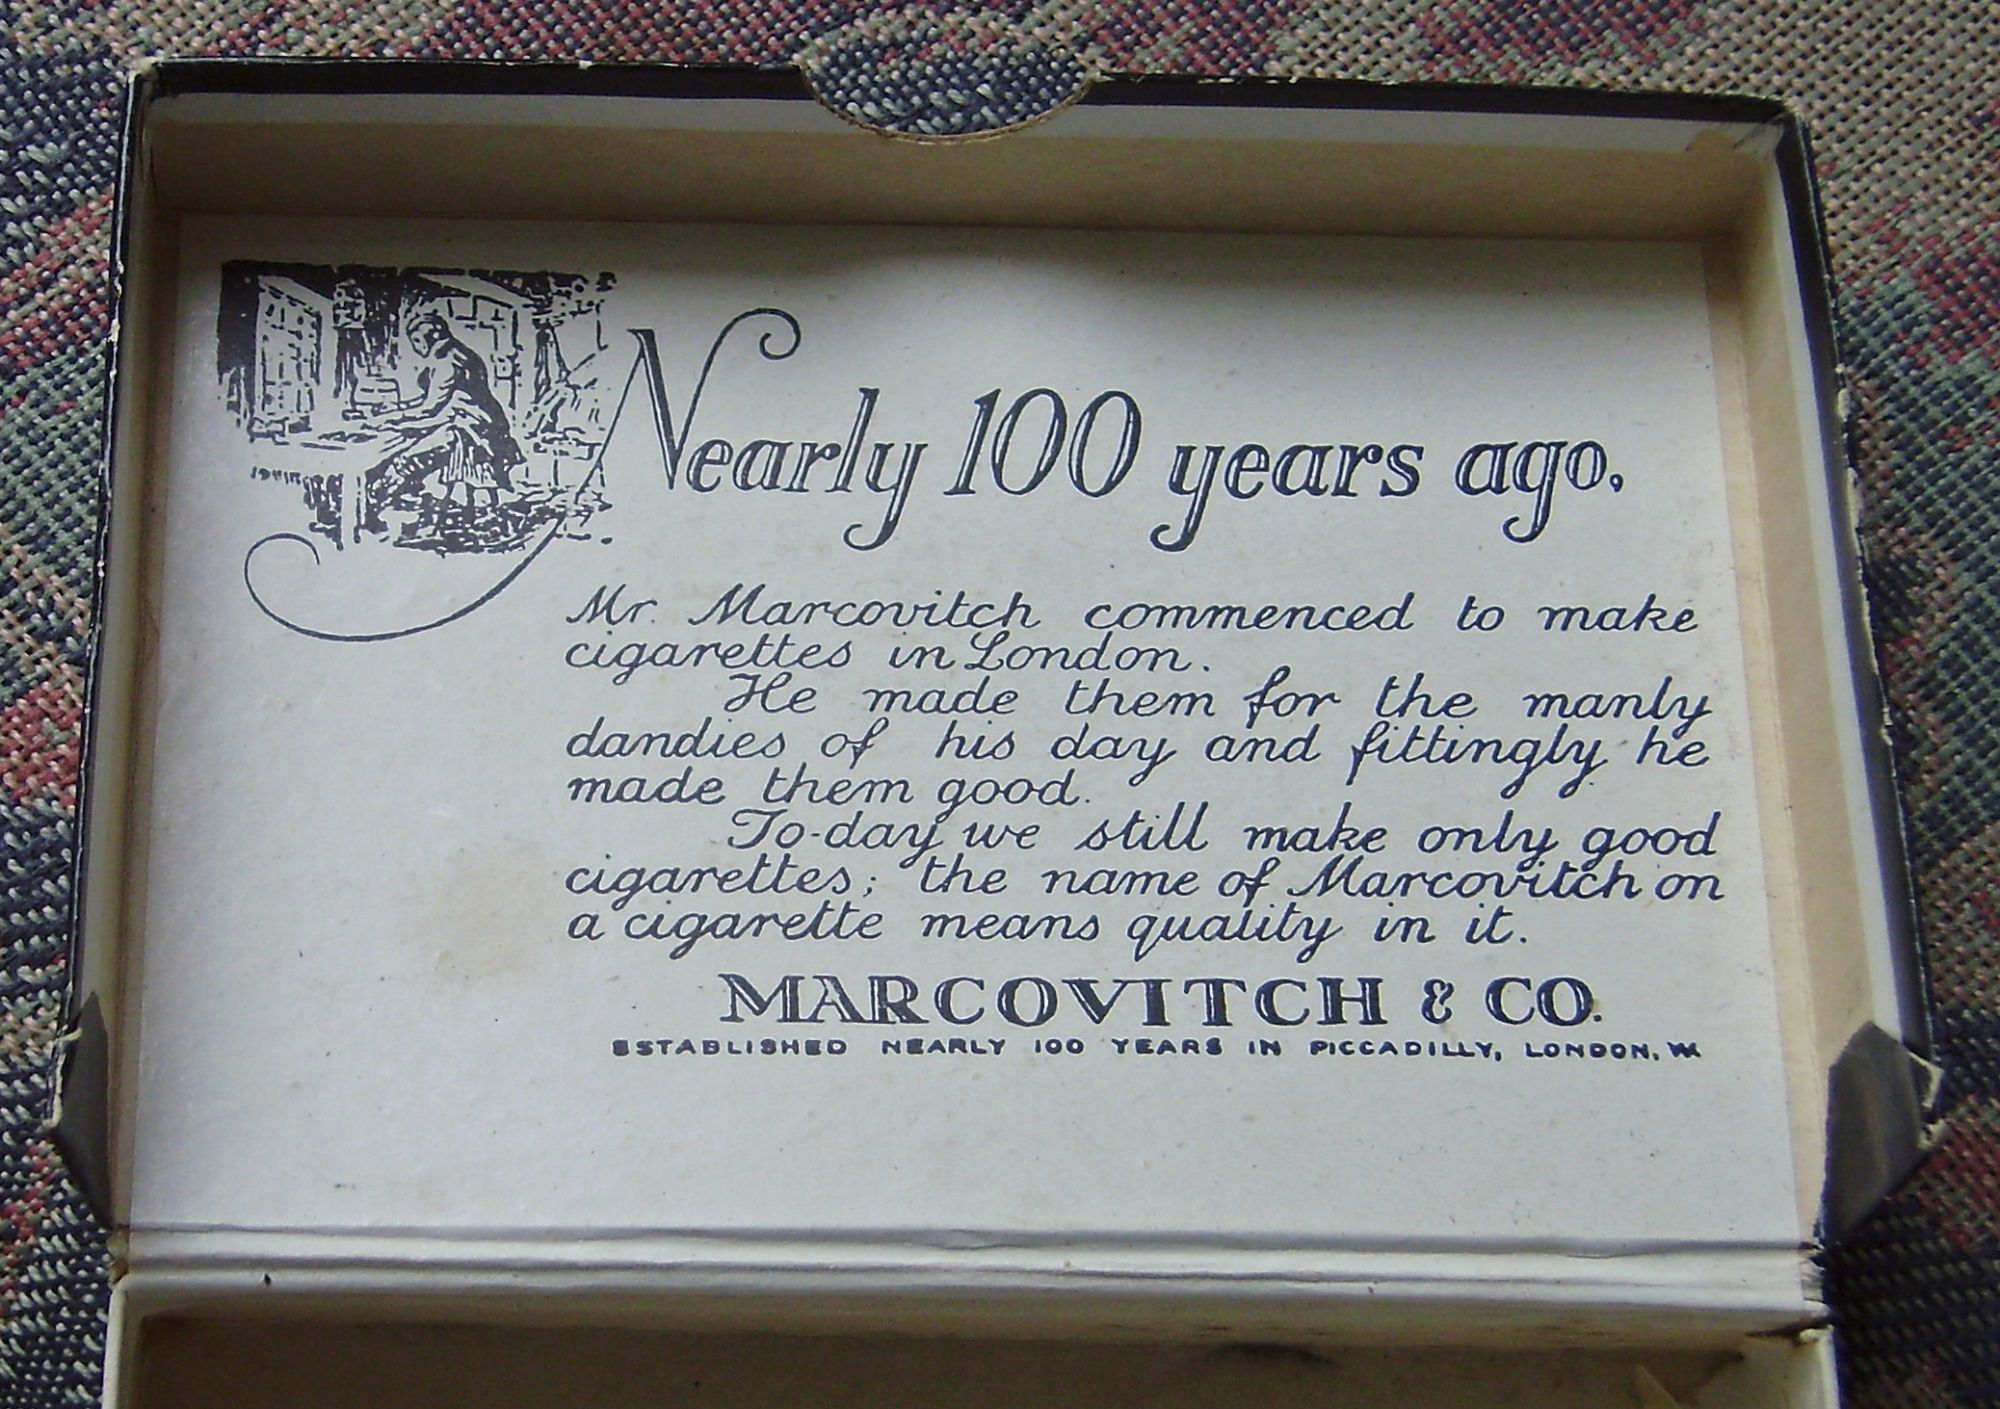 Nearly 100 years ago,
Mr. Marcovitch commenced to make
cigarettes in London.
He made them for the manly
dandies of his day and fittingly he
made them good.
To-day we still make only good
cigarettes; the name of Marcovitch on
a cigarette means quality in it.
MARCOVITCH & CO.
ESTABLISHED NEARLY 100 YEARS IN PICCADILLY, LONDON, W.